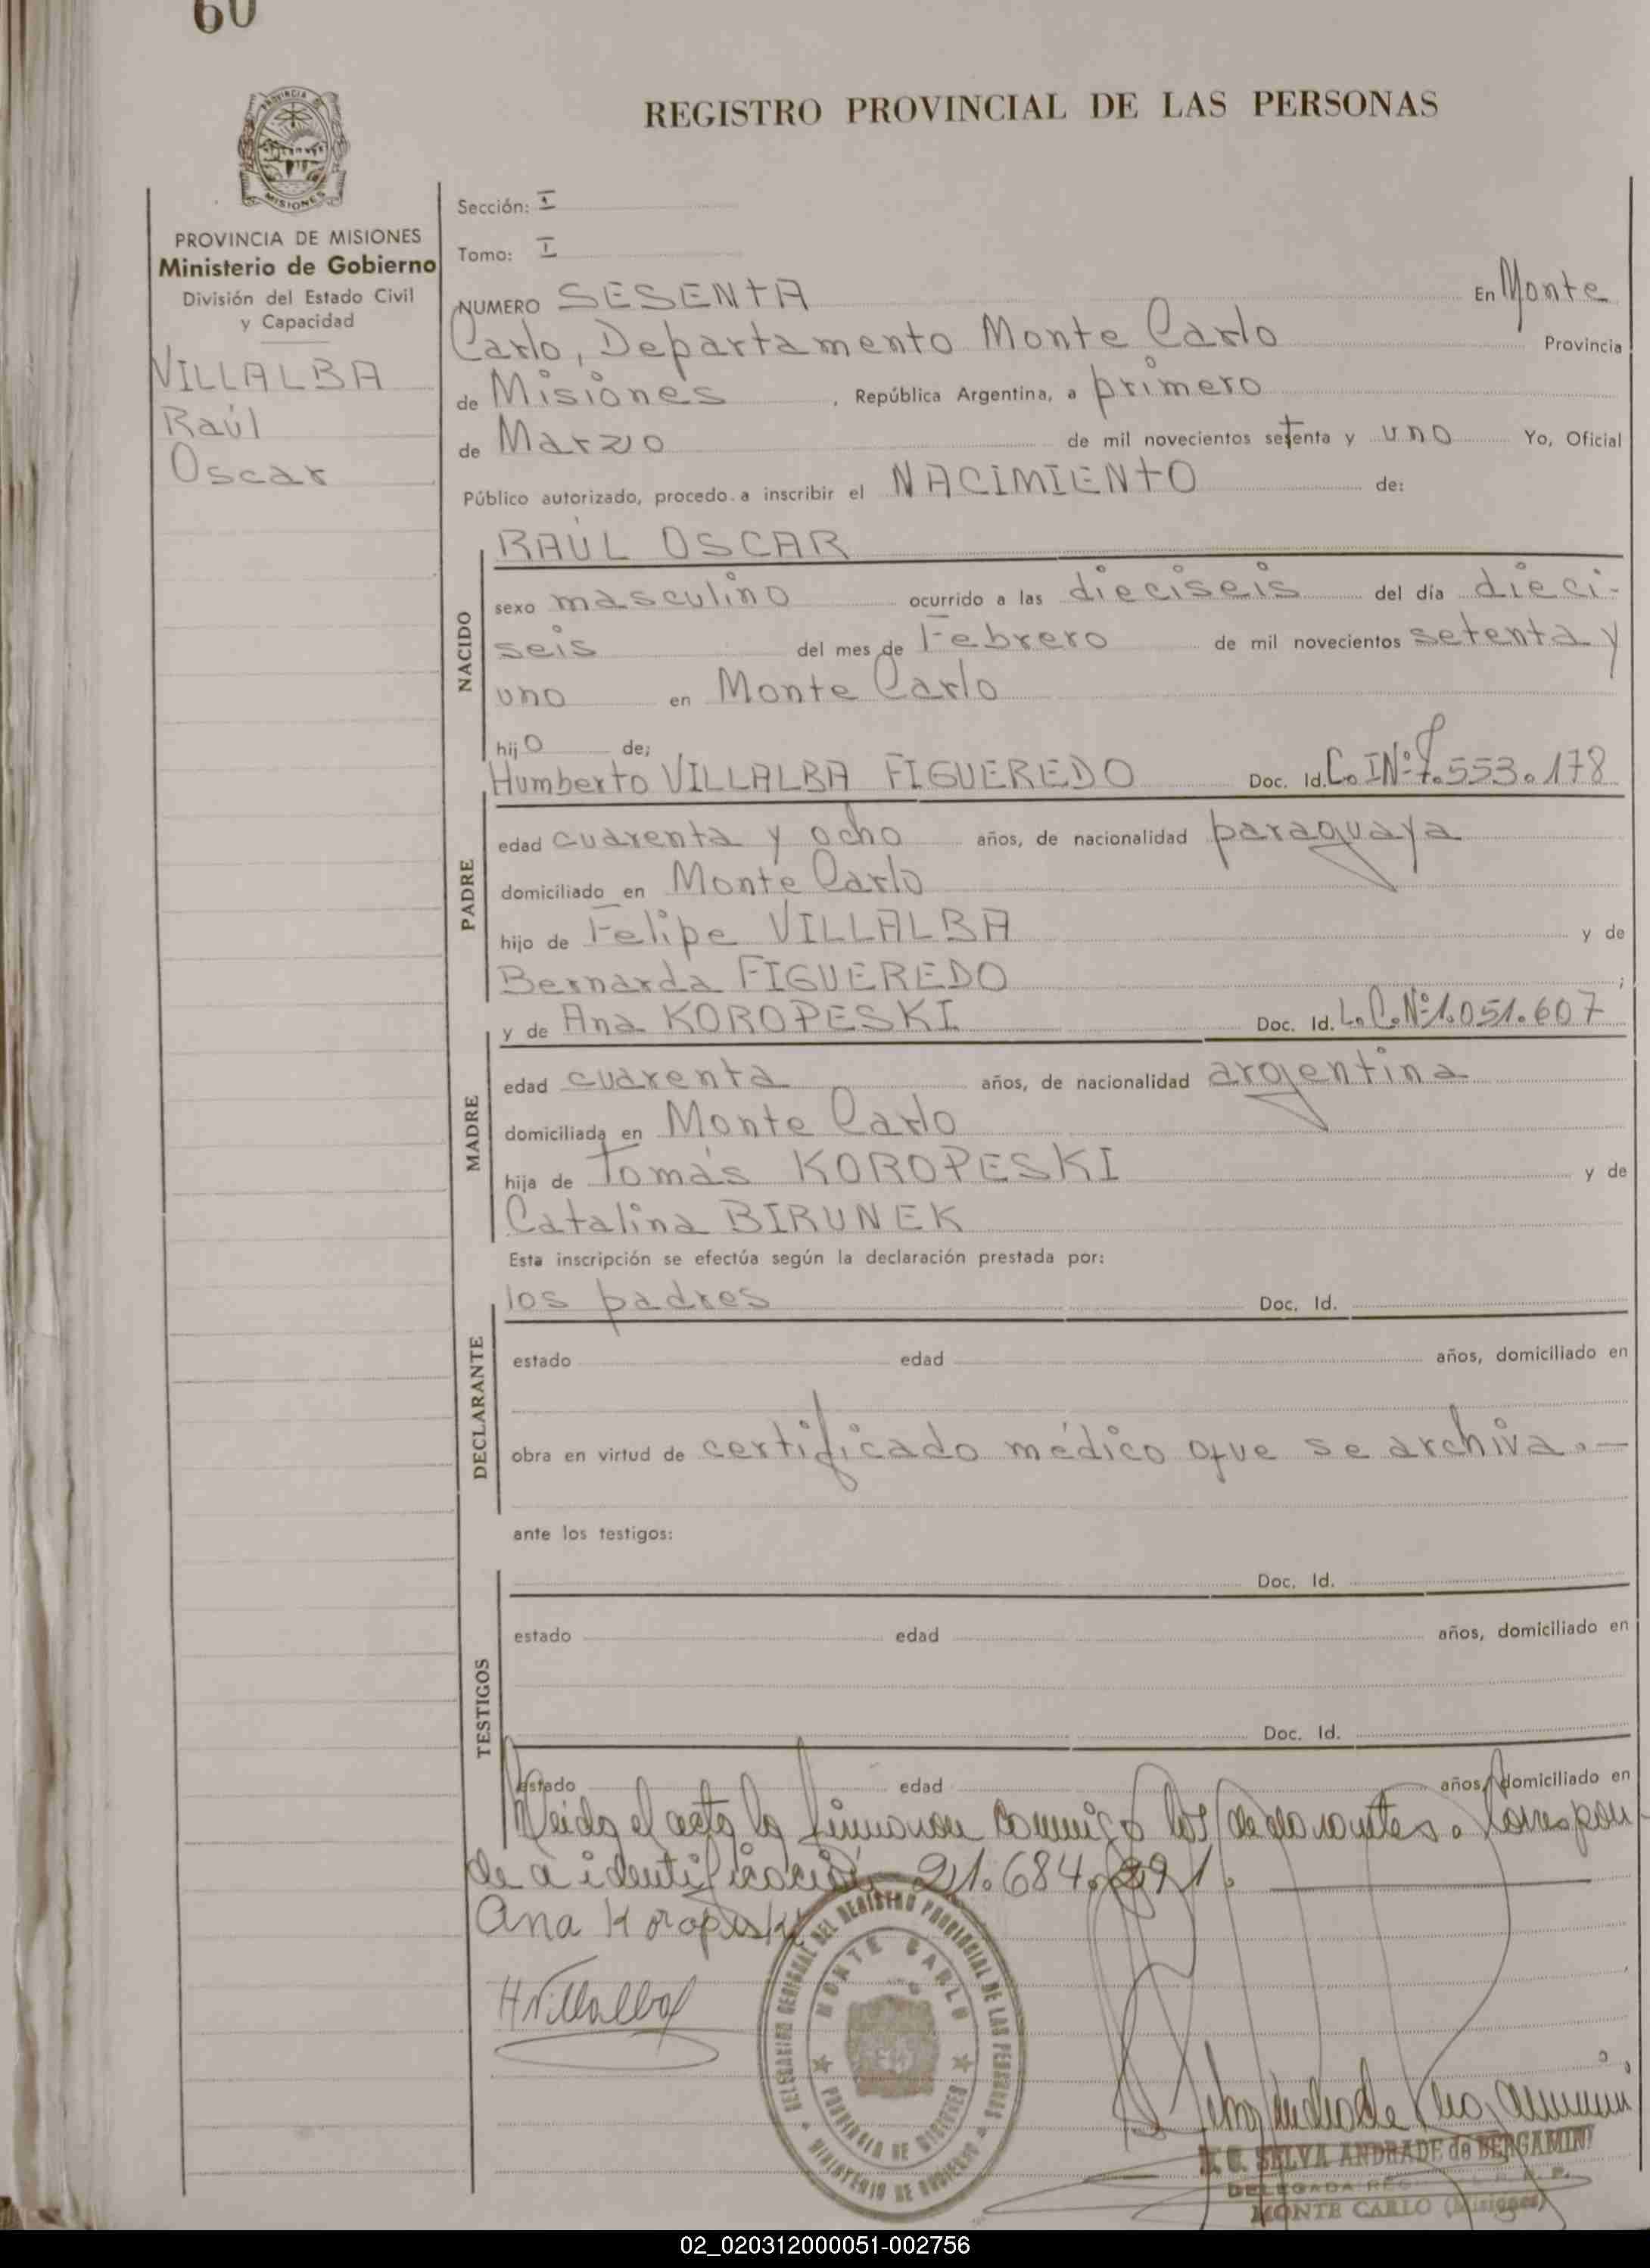 60
REGISTRO PROVINCIAL DE LAS PERSONAS
PROVINCIA DE MISIONES
Ministerio de Gobierno
División del Estado Civil
y Capacidad
VILLALBA
Raúl
Oscar
Sección: I
Tomo: I
NUMERO SESENTA En Monte
Carlo, Departamento Monte Carlo Provincia
de Misiones, República Argentina, a primero
de Marzo de mil novecientos setenta y uno Yo, Oficial
Público autorizado, procedo a inscribir el NACIMIENTO de:
RAÚL OSCAR
NACIDO
sexo masculino ocurrido a las dieciseis del día dieci-
seis del mes de Febrero de mil novecientos setenta y
uno en Monte Carlo
hijo de;
Humberto VILLALBA FIGUEREDO Doc. Id. C. I Nº 7.553.178
PADRE
edad cuarenta y ocho años, de nacionalidad paraguaya
domiciliado en Monte Carlo
hijo de Felipe VILLALBA y de
Bernarda FIGUEREDO ;
y de Ana KOROPESKI Doc. Id. L. C. Nº 1.051.607
MADRE
edad cuarenta años, de nacionalidad argentina
domiciliada en Monte Carlo
hija de Tomás KOROPESKI y de
Catalina BIRUNEK
Esta inscripción se efectúa según la declaración prestada por:
los padres Doc. Id.
DECLARANTE
estado edad años, domiciliado en
obra en virtud de certificado médico que se archiva.—
ante los testigos:
Doc. Id.
TESTIGOS
estado edad años, domiciliado en
Doc. Id.
estado edad años, domiciliado en
Leída el acta la firmaron conmigo los declarantes. Correspon-
de a identificación 21.684.291.
Ana Koropeski
H Villalba
DELEGACION REGIONAL DEL REGISTRO PROVINCIAL DE LAS PERSONAS
MONTE CARLO
PROVINCIA DE MISIONES
MINISTERIO DE GOBIERNO
SELVA ANDRADE de BERGAMINI
DELEGADA REG. R. P.
MONTE CARLO (Misiones)
02_020312000051-002756